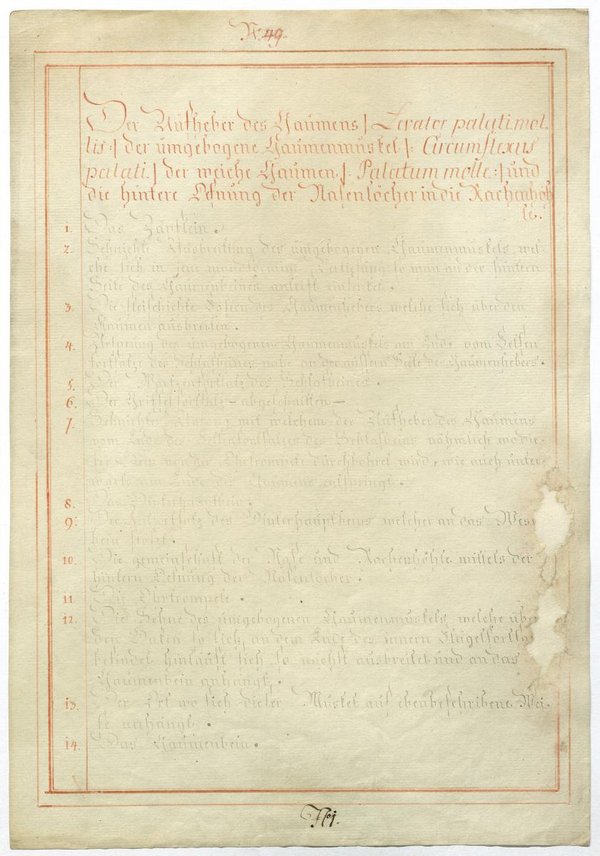 N. 49.
Der Aufheber des Gaumens /: Levator palati mol-
lis :/ der umgebogene Gaumenmuskel /: Circumflexus
palati :/ der weiche Gaumen /: Palatum molle :/ und
die hintere Öfnung der Nasenlöcher in die Rachenhöh
le.
1. Das Zäpflein.
2. Sehnichte Ausbreitung des umgebogenen Gaumenmuskels, wel-
che sich in jene
Seite des Gaumenbeines
3. Die fleischichte des Gaumenhebers welche sich über den
Gaumen ausbreiten.
4. Ursprung des umgebogenen Gaumenmuskels am Ende vom Felsen
fortsatze des Schlafbeines nahe an der äussern Seite des Gaumenhebers.
5. Der Wartzenfortsatz des Schlafbeines.
6. Der Griffelfortsatz – abgeschnitten –
7. Sehnichter Ursprung mit welchem der Aufheber des Gaumens
vom Ende des Felsenfortsatzes des Schlafbeins nähmlich wo die
ser von der Ohrtrompete durchbohret wird, wie auch unter-
am Ende des Gaumens entspringt.
8. Das Hinterhauptbein.
9. Der des Hinterhauptbeins welcher an das Wes
bein stoßt.
10. Die gemeinschaft der Nase und Rachenhöhle mittels der
hintern Öfnung der Nasenlöcher.
11. Die Ohrtrompete.
12. Die Sehne des umgebogenen Gaumenmuskels, welche über
den Haken so sich an dem Ende des innern Flügelfortsa
befindet hinlauft sich so nachst ausbreitet und an das
Gaumenbein anhängt.
13. Der Ort wo sich dieser Muskel auf ebenbeschribene Wei-
se anhängt.
14. Das Gaumenbein.